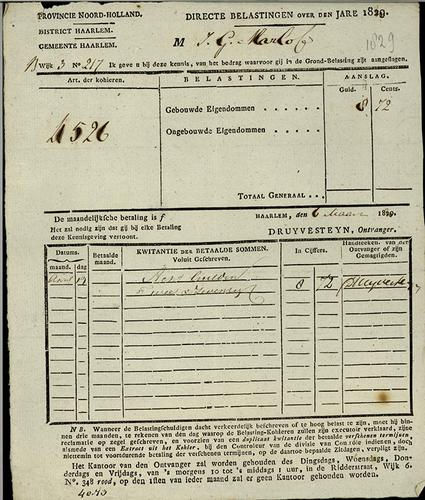 PROVINCIE NOORD-HOLLAND.
DIRECTE BELASTINGEN OVER DEN JARE 1829.
DISTRICT HAARLEM.
GEMEENTE HAARLEM.
M J. G.
1829
Wijk 3 N° 217 Ik geve u bij deze kennis, van het bedrag waarvoor gij in de Grond-Belasting zijt aangeslagen.
Art. der kohieren.
BELASTINGEN.
AANSLAG.
Guld. Cents.
Gebouwde Eigendommen . . . . . . 8 72
Ongebouwde Eigendommen . . . . .
4526
TOTAAL GENERAAL . . .
De maandelijksche betaling is f
HAARLEM, den 6 Maart 1829.
Het zal nodig zijn dat gij bij elke Betaling deze Kennisgeving vertoont.
DRUYVESTEYN, Ontvanger.
Datums.
maand. dag
Betaalde maand.
KWITANTIE DER BETAALDE SOMMEN.
Voluit Geschreven.
In Cijffers.
Handteeken. van den Ontvanger of zijn Gemagtigden.
April 8 72
NB. Wanneer de Belastingschuldigen dacht verkeerdelijk beschreven of te hoog belast te zijn, moet hij binnen drie maanden, te rekenen van den dag waarop de Belasting-Kohieren zullen zijn executoir verklaard, zijne reclamatie op zegel geschreven, en voorzien van een duplicaat kwitantie der betaalde verschenen termijnen, alsmede van een Extract uit het Kohier, bij den Controleur van de divisie
indienen, doch, reclamatie tot voordurende betaling der verschenen termijnen, op de daartoe bepaalde Zitdagen, verpligt zijn.
Het Kantoor van den Ontvanger zal worden gehouden des Dingsdags, Woensdags, Donderdags en Vrijdags, van 's morgens 10 tot 's middags 1 uur, in de Ridderstraat, Wijk 6. N°. 348 rood, op den 1sten van ieder maand zal er geen Kantoor worden gehouden.